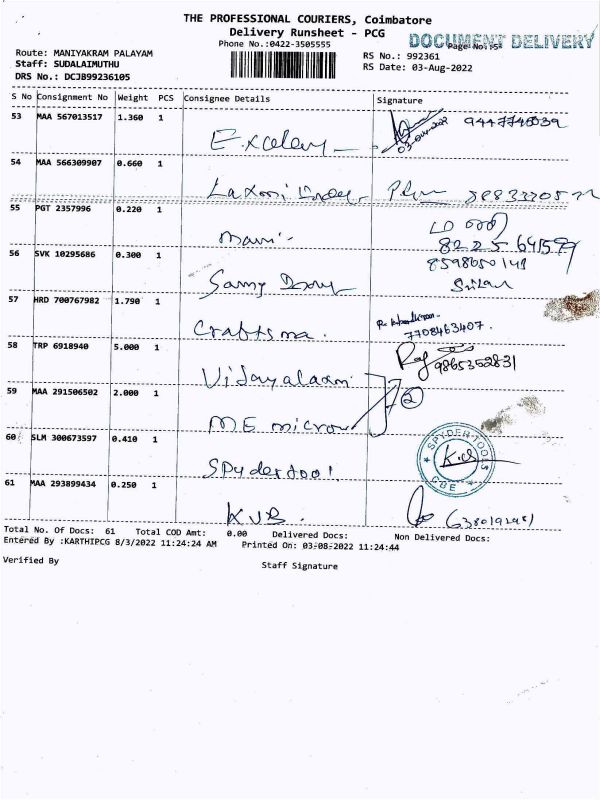 THE PROFESSIONAL COURIERS, Coimbatore
Delivery Runsheet - PCG
Phone No.:0422-3505555
DOCUMENT DELIVERY
Page No.:5
Route: MANIYAKRAM PALAYAM
Staff: SUDALAIMUTHU
DRS No.: DCJB99236105
RS No.: 992361
RS Date: 03-Aug-2022
S No Consignment No Weight PCS Consignee Details Signature
53 MAA 567013517 1.360 1
03-08-2022
54 MAA 566309907 0.660 1
Laxmi
55 PGT 2357996 0.220 1
Mani
56 SVK 10295686 0.300 1
8598650141
57 HRD 700767982 1.790 1
Craftsma. 7708463407.
58 TRP 6918940 5.000 1
Vijayalaxmi Raj 9865352831
59 MAA 291506502 2.000 1
M.E micron 2
60 SLM 300673597 0.410 1
Spydertool SPYDER TOOLS CBE
61 MAA 293899434 0.250 1
KVB.
Total No. Of Docs: 61 Total COD Amt: 0.00 Delivered Docs: Non Delivered Docs:
Entered By :KARTHIPCG 8/3/2022 11:24:24 AM Printed On: 03-08-2022 11:24:44
Verified By
Staff Signature